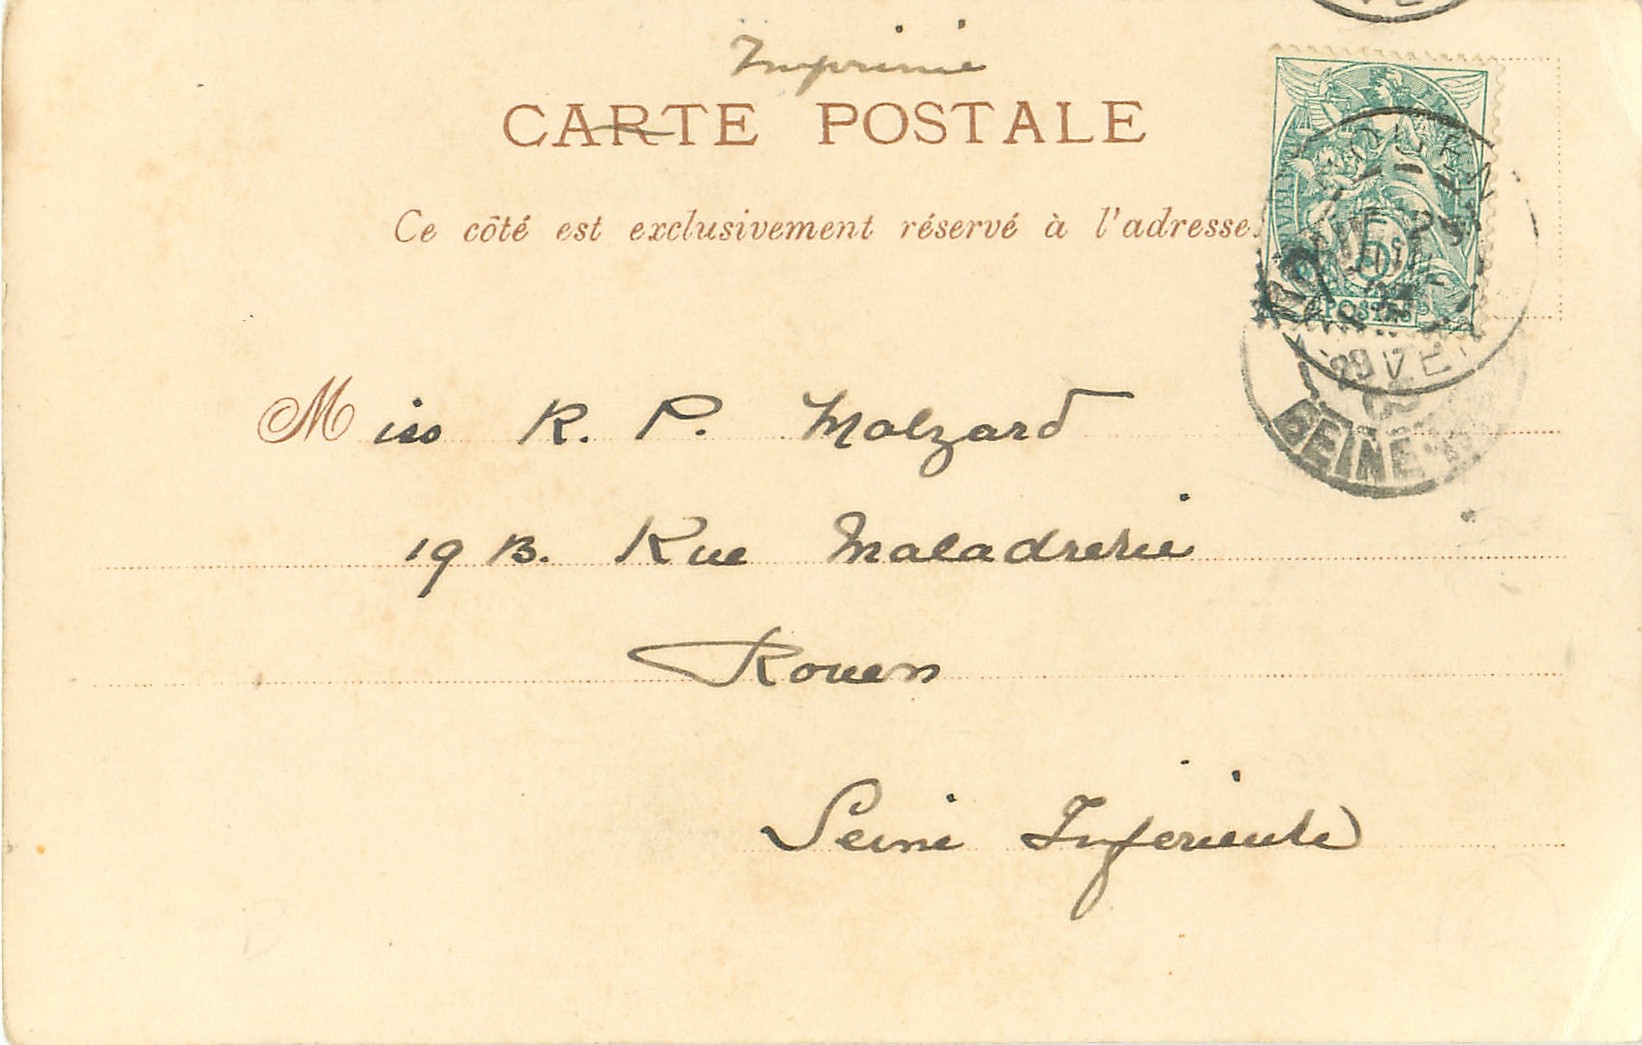 Imprimé
CARTE POSTALE
Ce côté est exclusivement réservé à l'adresse.
POSTES
Miss R. P. Malzard
19 B. Rue Maladrerie
Rouen
Seine Inferieure
SEINE